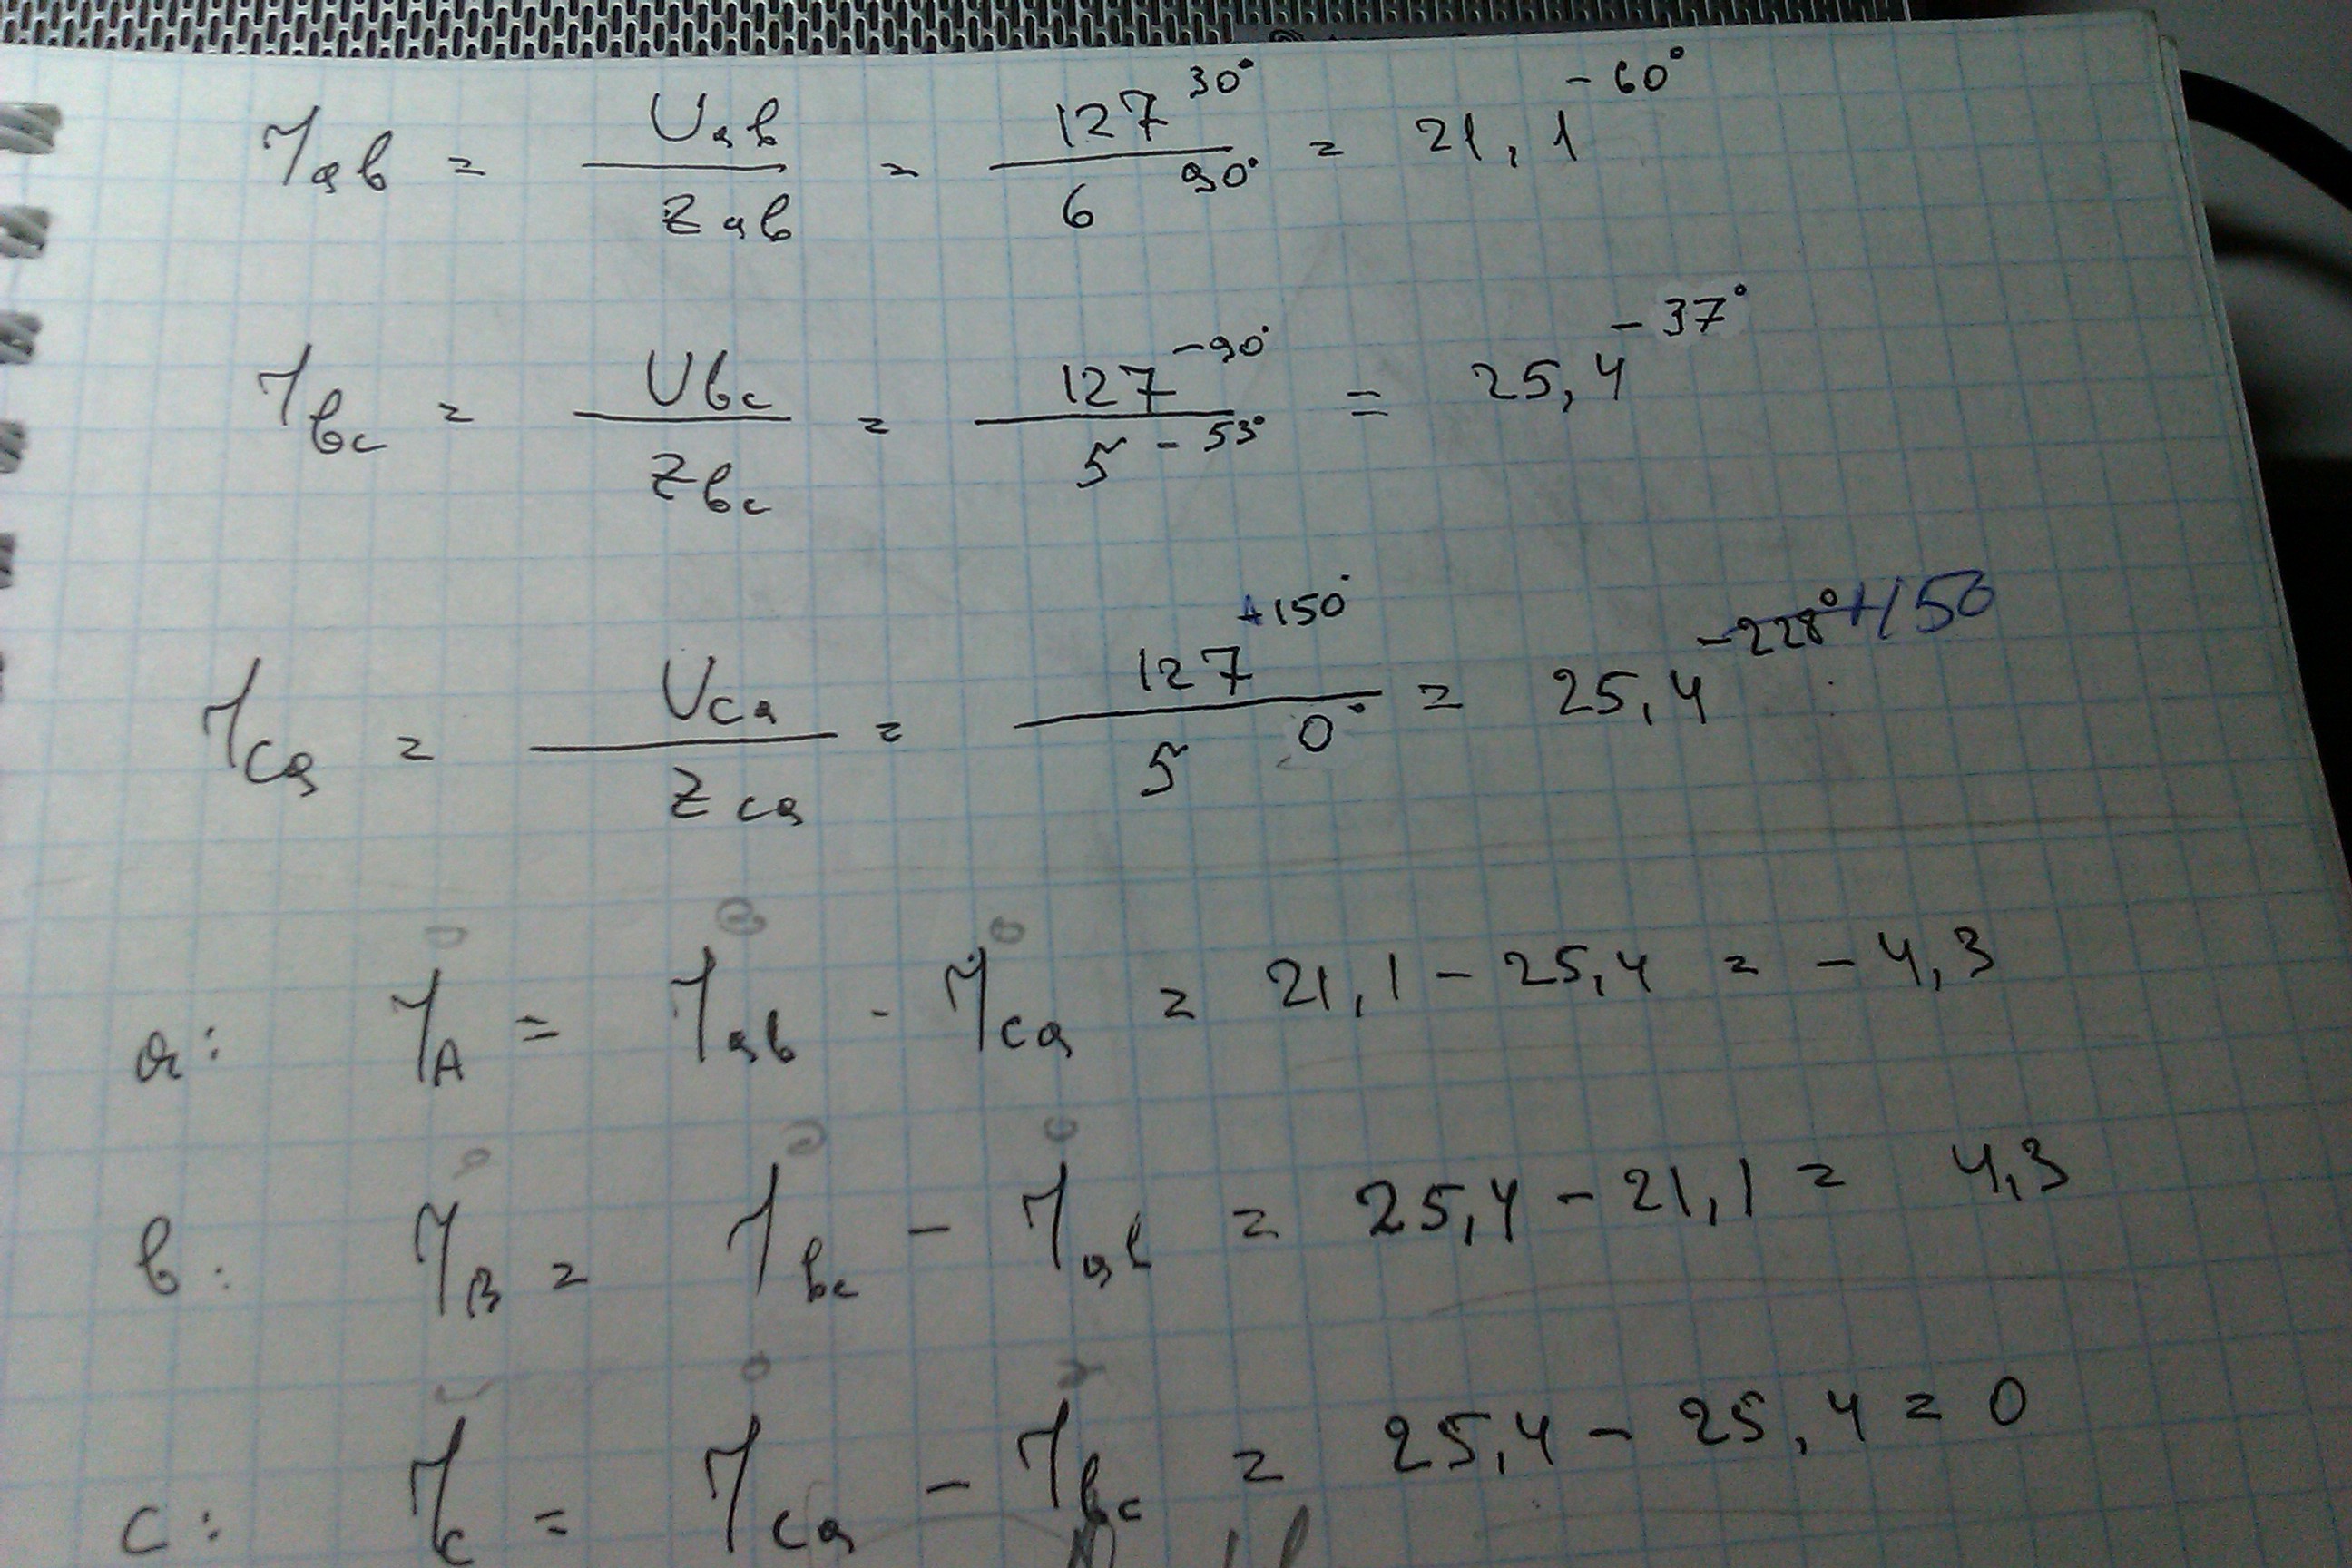 I ab = U ab / Z ab = 127 30° / 6 90° = 21,1 -60°
I bc = U bc / Z bc = 127 -90° / 5 -53° = 25,4 -37°
I ca = U ca / Z ca = 127 +150° / 5 0° = 25,4 -228° +150
a: I A = I ab - I ca = 21,1 - 25,4 = -4,3
b: I B = I bc - I ab = 25,4 - 21,1 = 4,3
c: I c = I ca - I bc = 25,4 - 25,4 = 0